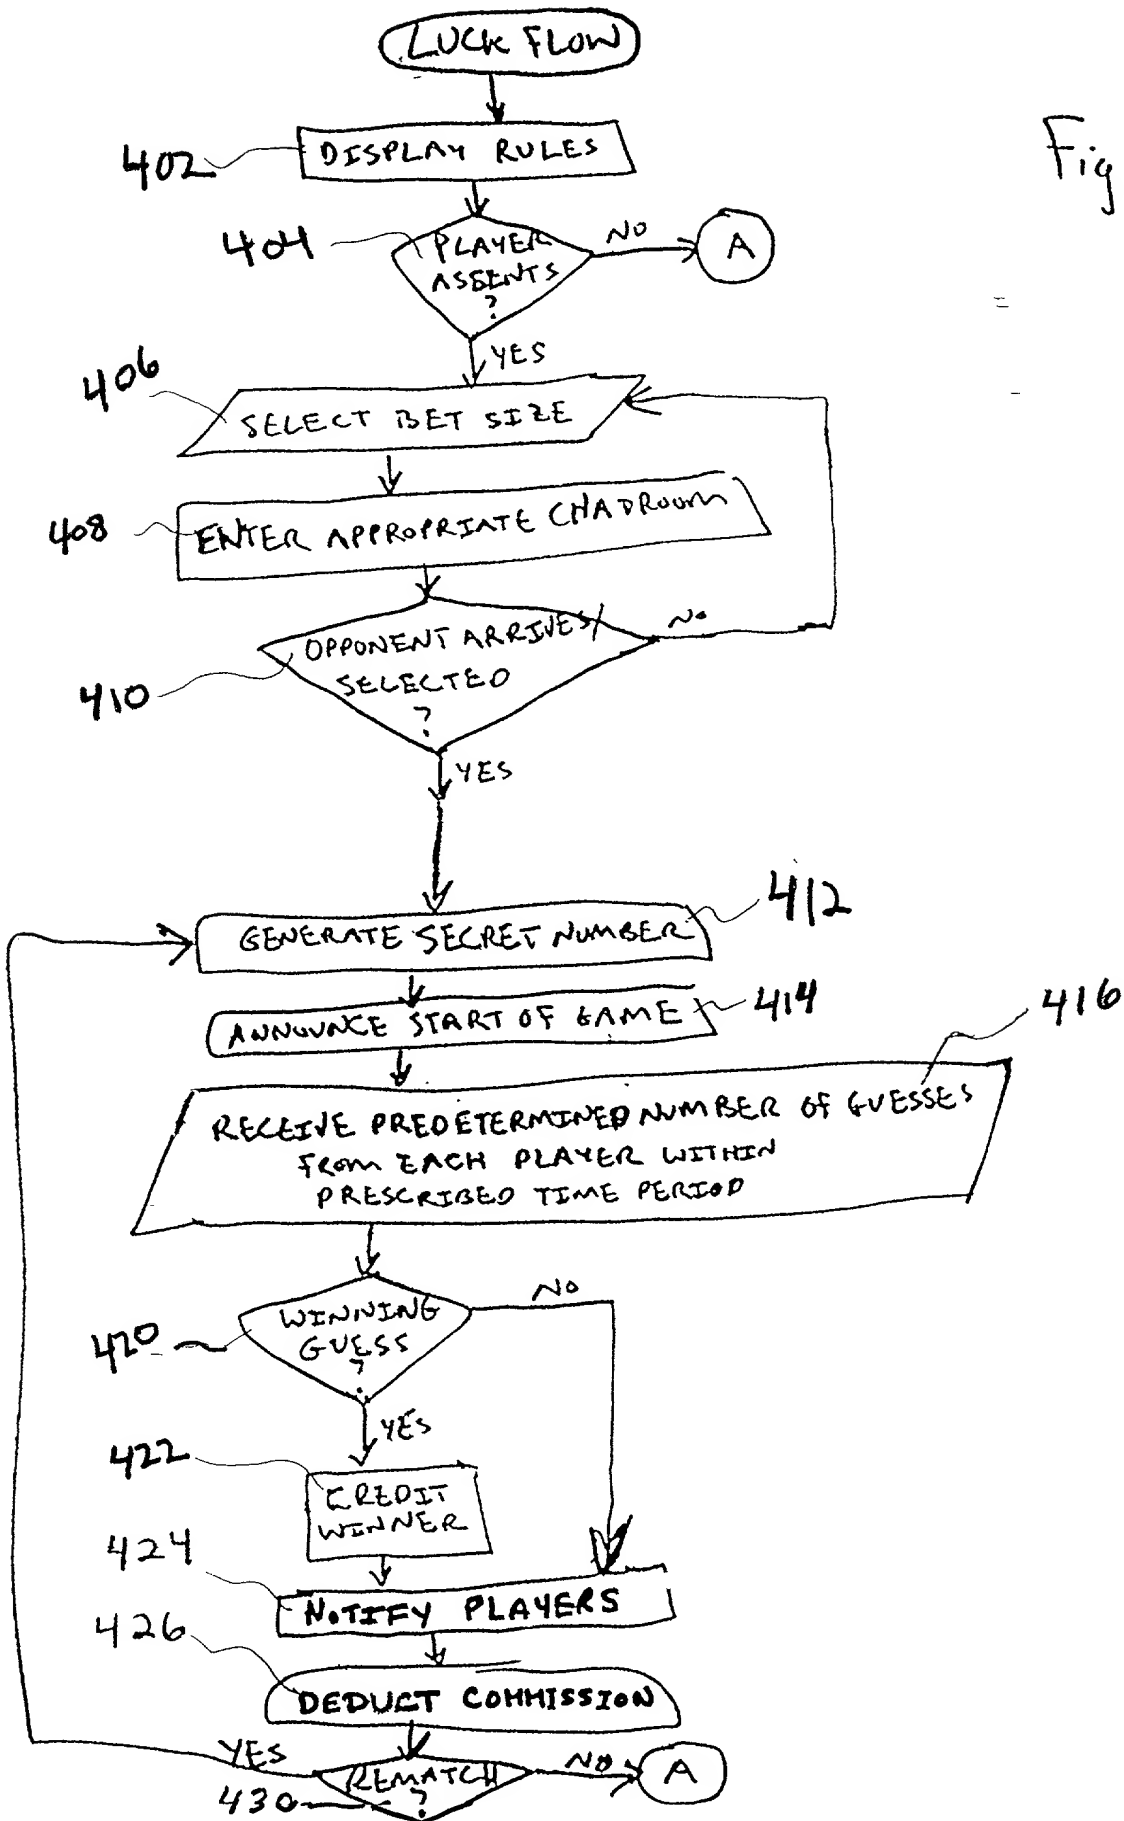 LUCK FLOW
Fig
402
DISPLAY RULES
404
PLAYER
ASSENTS
?
NO
A
YES
406
SELECT BET SIZE
408
ENTER APPROPRIATE CHADROOM
410
OPPONENT ARRIVES/
SELECTED
?
NO
YES
412
GENERATE SECRET NUMBER
414
ANNOUNCE START OF GAME
416
RECEIVE PREDETERMINED NUMBER OF GUESSES
FROM EACH PLAYER WITHIN
PRESCRIBED TIME PERIOD
420
WINNING
GUESS
?
NO
YES
422
CREDIT
WINNER
424
NOTIFY PLAYERS
426
DEDUCT COMMISSION
YES
430
REMATCH
?
NO
A